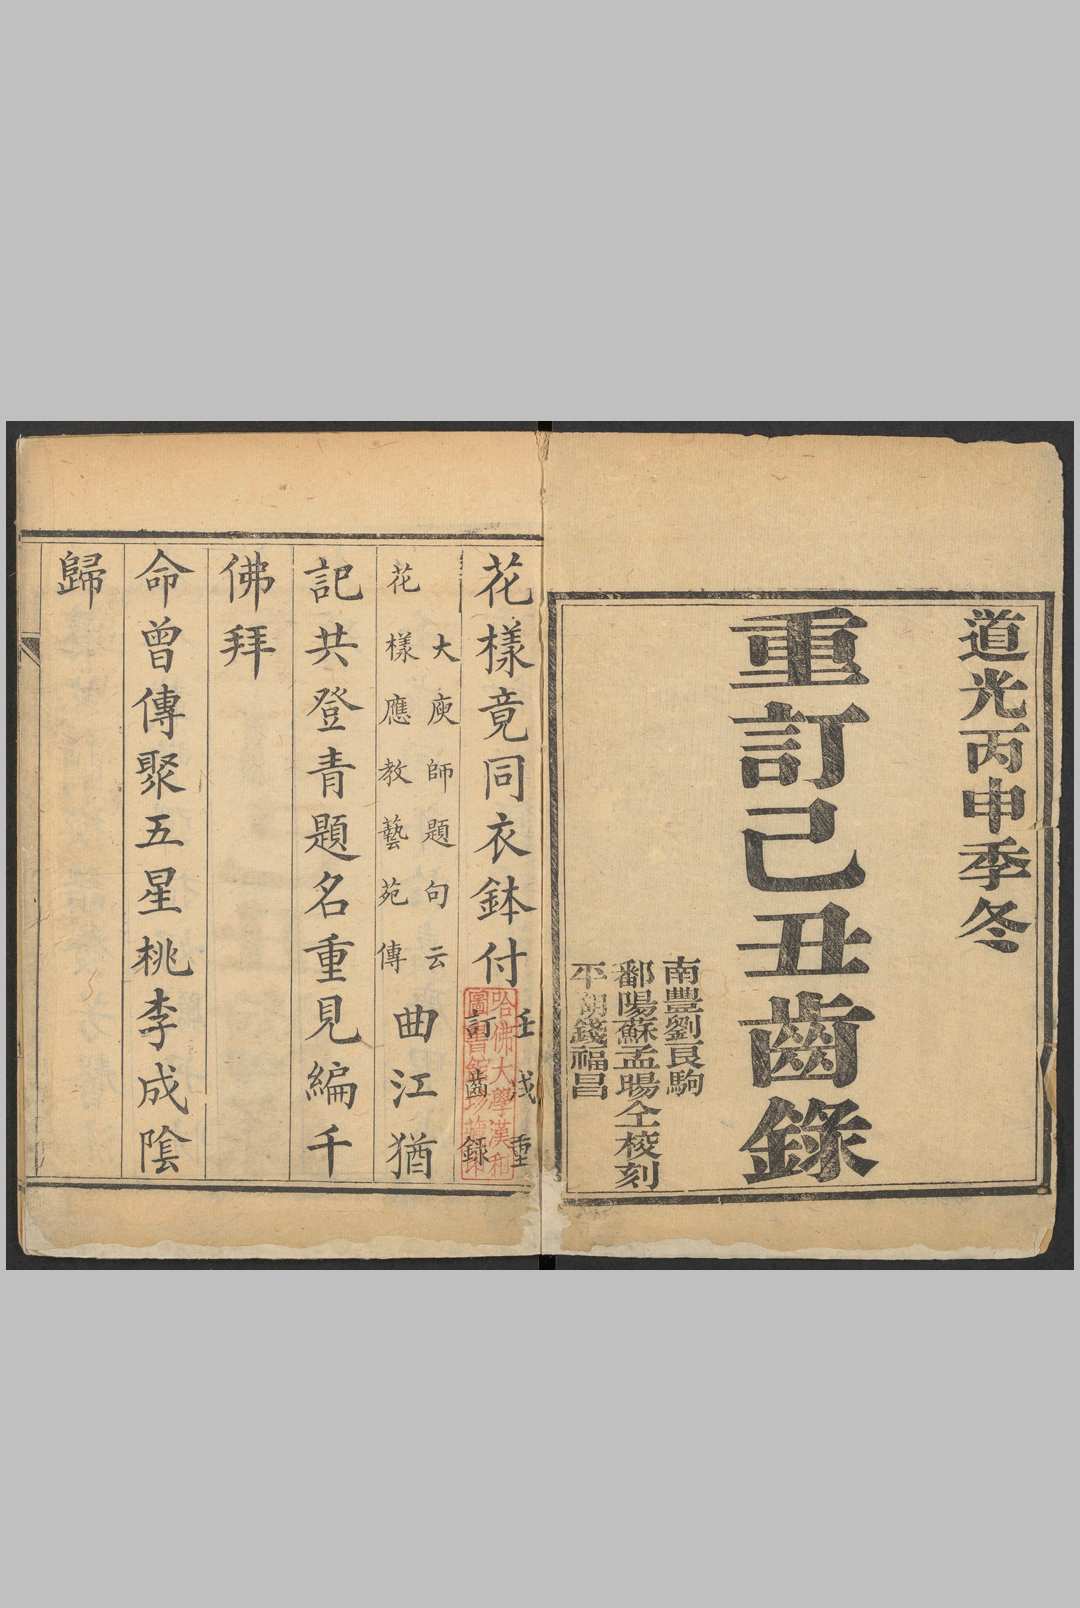 道光丙申季冬
重訂己丑齒錄
南豐劉良駒
鄱陽蘇孟暘仝校刻
平湖錢福昌
花樣竟同衣鉢付
壬戌重
訂齒錄
哈佛大學漢和
圖書館珍藏印
大庾師題句云
花樣應教藝苑傳
曲江猶
記共登青題名重見編千
佛拜
命曾傳聚五星桃李成陰
歸